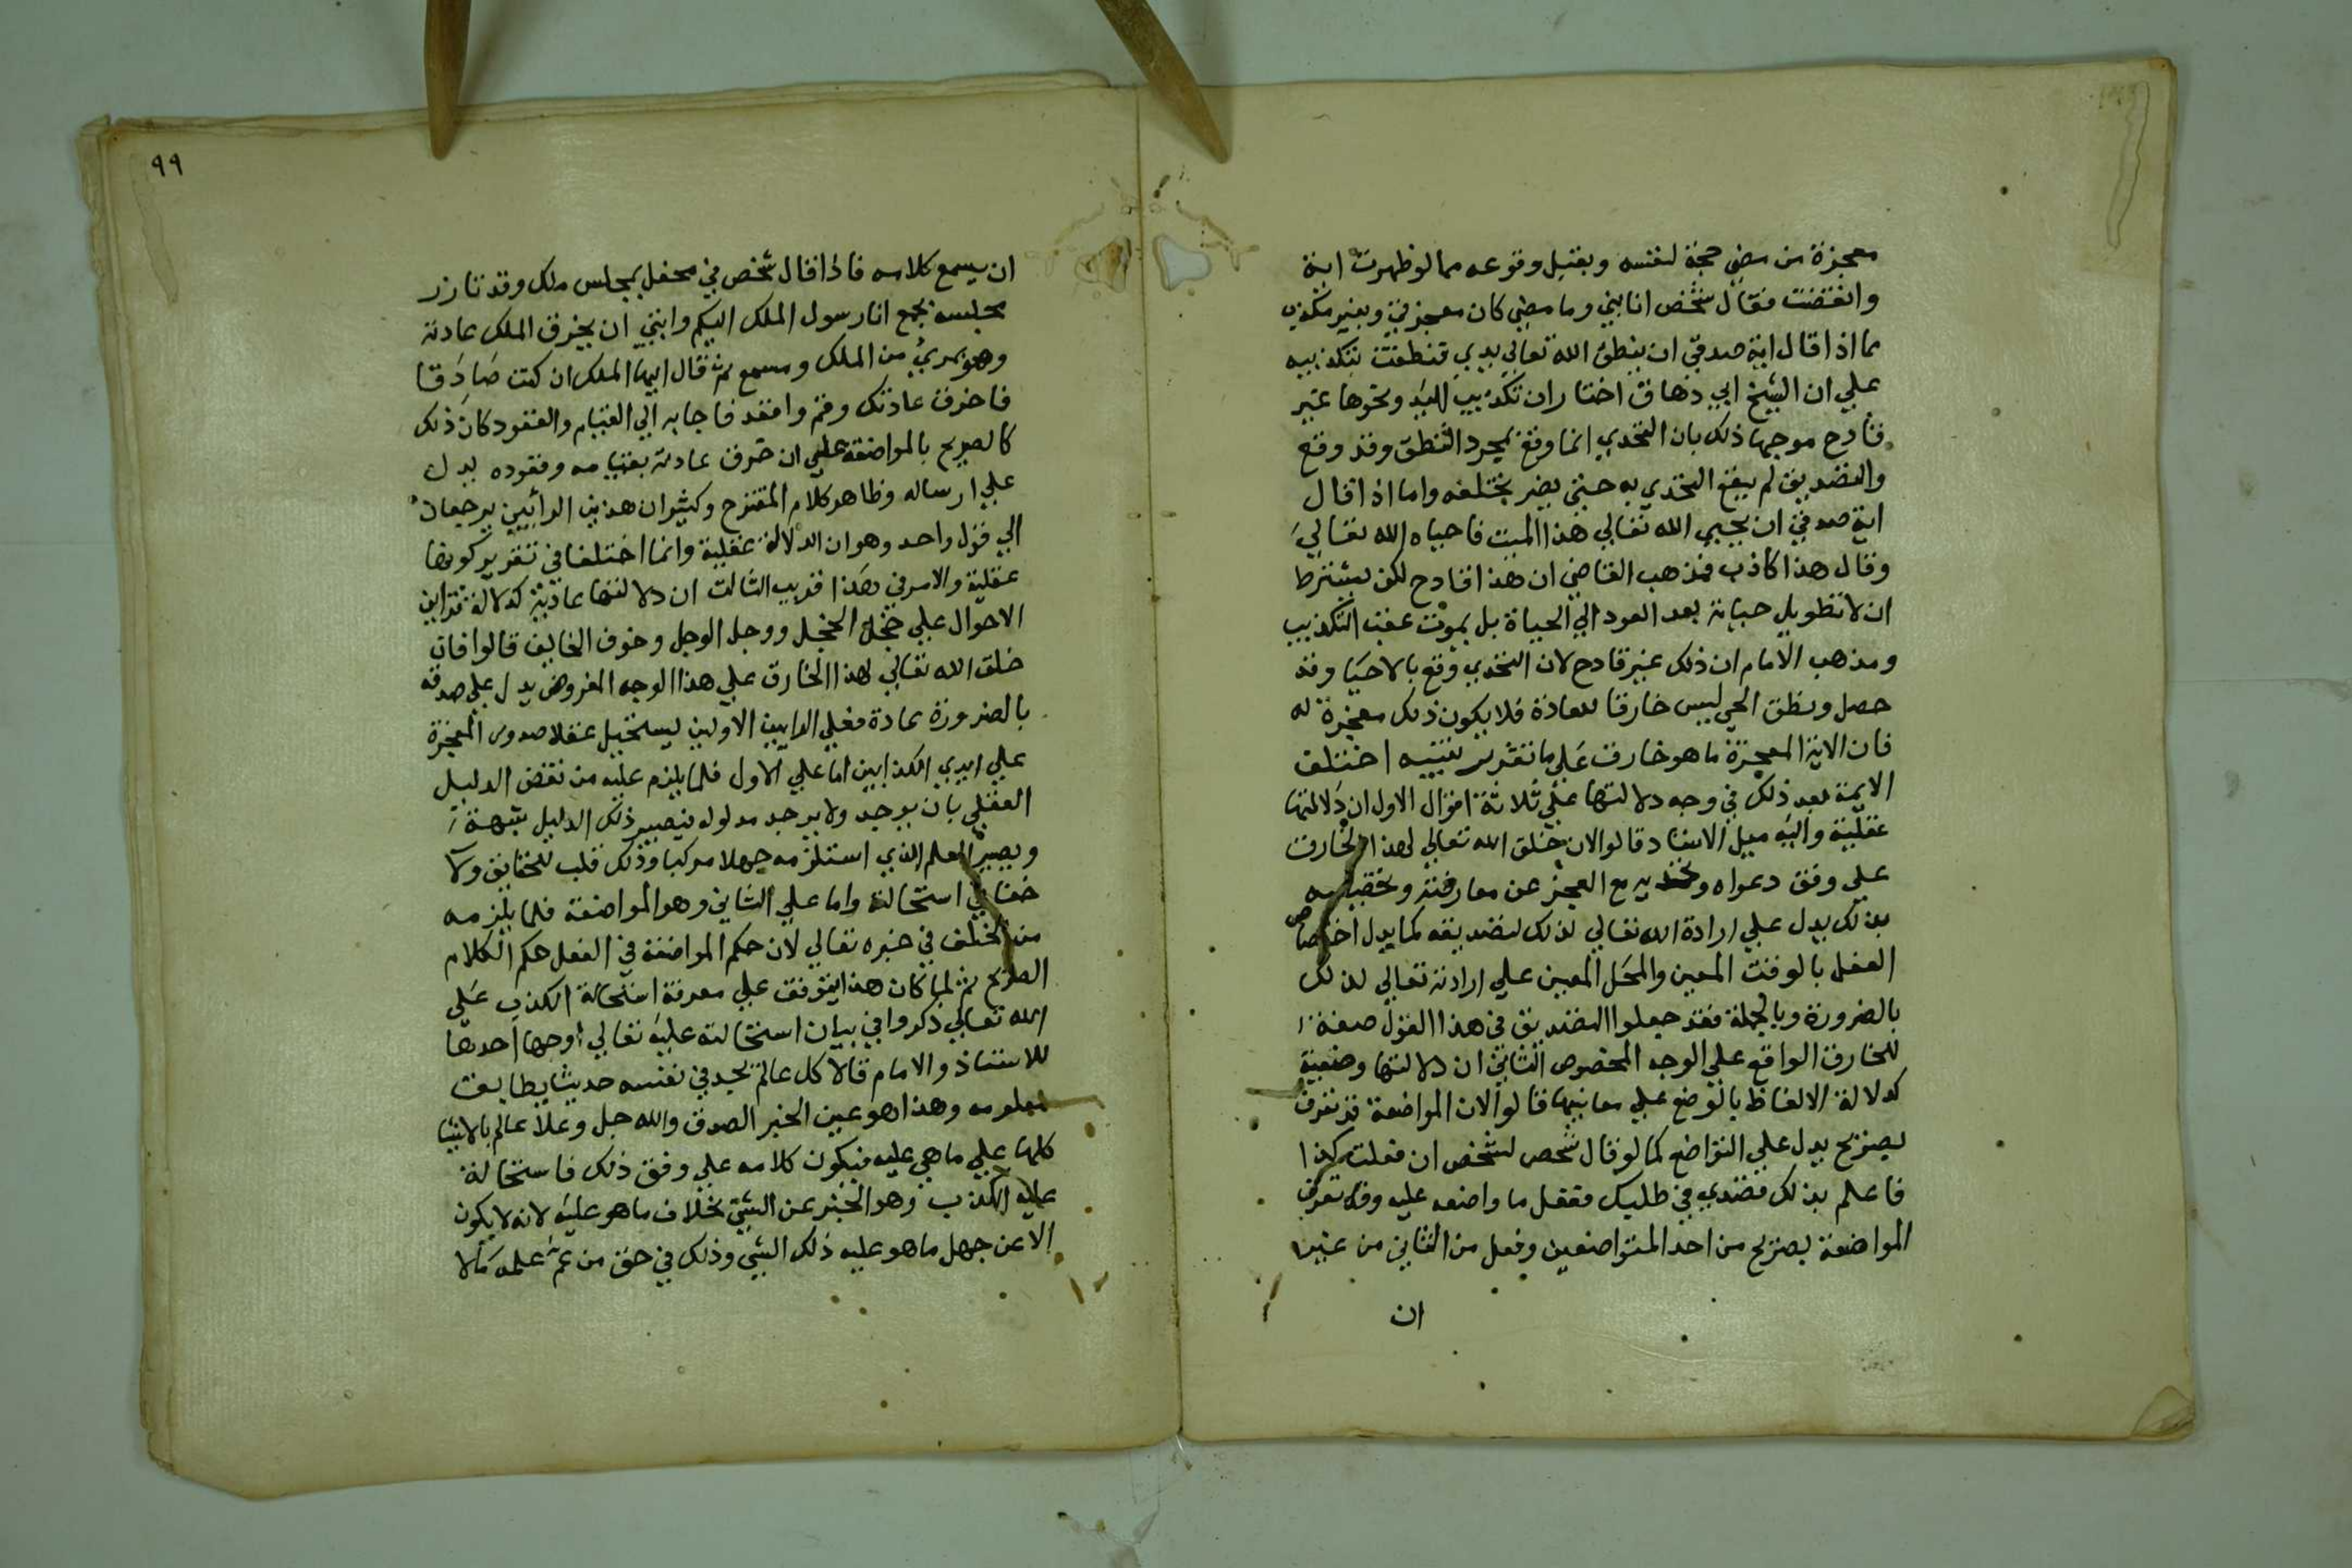 معجزة من مضى حجة لنفسه وبقبل وقوعه مما لو ظهرت اية
وانقضت فقال شخص انا نبي وما مضى كان معجزتي وبغير مكذب
مما اذا قال اية صدقي ان ينطق الله تعالي يدي فنطقت بتكذيبه
علي ان الشيخ ابي دهاق اختار ان تكذيب اليد ونحوها غير
قادح موجها ذلك بان التحدي انما وقع بمجرد النطق وقد وقع
والتصديق لم يقع التحدي به حتي يضر بتخلفه واما اذا قال
اية صدقي ان يحيي الله تعالي هذا الميت فاحياه الله تعالي
وقال هذا كاذب فمذهب القاضي ان هذا قادح لكن بشترط
ان لا تطويل حياته بعد العود الي الحياة بل يموت عقب التكذيب
ومذهب الامام ان ذلك غير قادح لان التحدي وقع بالاحيا وقد
حصل ونطق الحي ليس خارقا للعادة فلا يكون ذلك معجزة له
فان الاية المعجزة ما هو خارق علي ما تقدم تنبيه اختلف
الايمة بعد ذلك في وجه دلالتها علي ثلاثة اقوال الاول ان دلالتها
عقلية واليه ميل الاستاد قالوا لان خلق الله تعالي لهذا الخارق
علي وفق دعواه وتحديه مع العجز عن معارضته وتخصيصه
بذلك يدل علي ارادة الله تعالي لذلك لتصديقه كما يدل اختصاص
الفعل بالوقت المعين والمحل المعين علي ارادته تعالي لذلك
بالضرورة وبالجملة فقد جعلوا التصديق في هذا القول صفة
للخارق الواقع علي الوجه المخصوص الثاني ان دلالتها وضعية
كدلالة الالفاظ بالوضع علي معانيها قالوا لان المواضعة قد تعرف
بصريح يدل علي التواضع كما لو قال شخص لشخص ان فعلت كذا
فاعلم بذلك قصدي في طلبك ففعل ما واضعه عليه وقد تعرف
المواضعة بصريح من احد المتواضعين وفعل من الثاني من غير
ان
٩٩
ان يسمع كلامه فاذا قال شخص في محفل بمجلس ملك وقد تازر
مجلسه بجمع انا رسول الملك اليكم وايتي ان يخرق الملك عادته
وهو بمري من الملك ومسمع ثم قال ايها الملك ان كنت صادقا
فاخرق عادتك وقم واقعد فاجابه الي القيام والقعود كان ذلك
كالصريح بالمواضعة علي ان خرق عادته بقيامه وقعوده يدل
علي ارساله وظاهر كلام المقترح وكثير ان هذين الرأيين يرجعان
الي قول واحد وهو ان الدلالة عقلية وانما اختلفا في تقرير كونها
عقلية والامر في هذا قريب الثالث ان دلالتها عادية كدلالة قراين
الاحوال علي خجل الخجل ووجل الوجل وخوف الخايف قالوا فان
خلق الله تعالي لهذا الخارق علي هذا الوجه المفروض يدل علي صدقه
بالضرورة عادة فعلي الرايين الاولين يستحيل عقلا صدور المعجزة
علي ايدي الكذابين اما علي الاول فلما يلزم عليه من نقض الدليل
العقلي بان يوجد ولا يوجد مدلوله فيصير ذلك الدليل شبهة
ويصير العلم الذي استلزمه جهلا مركبا وذلك قلب للحقايق ولا
خفا في استحالته واما علي الثاني وهو المواضعة فلما يلزمه
من الخلف في خبره تعالي لان حكم المواضعة في الفعل حكم الكلام
الصريح ثم لما كان هذا يتوقف علي معرفة استحالة الكذب علي
الله تعالي ذكروا في بيان استحالته عليه تعالي اوجها احدها
للاستاذ والامام قالا كل عالم يجد في نفسه حديثا يطابق
معلومه وهذا هو عين الخبر الصدق والله جل وعلا عالم بالاشيا
كلها علي ما هي عليه فيكون كلامه علي وفق ذلك فاستحالة
عليه الكذب وهو الخبر عن الشي بخلاف ما هو عليه لانه لا يكون
الا عن جهل ما هو عليه ذلك الشي وذلك في حق من عم علمه كلا